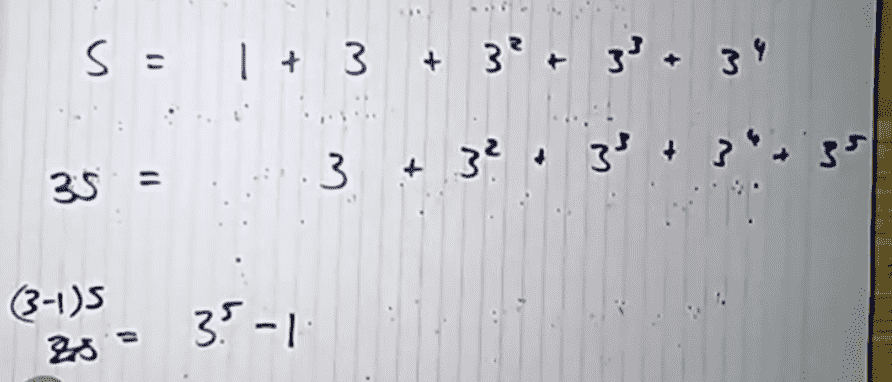 S = 1 + 3 + 3² + 3³ + 3⁴
3S = 3 + 3² + 3³ + 3⁴ + 3⁵
(3-1)S
2S = 3⁵ - 1